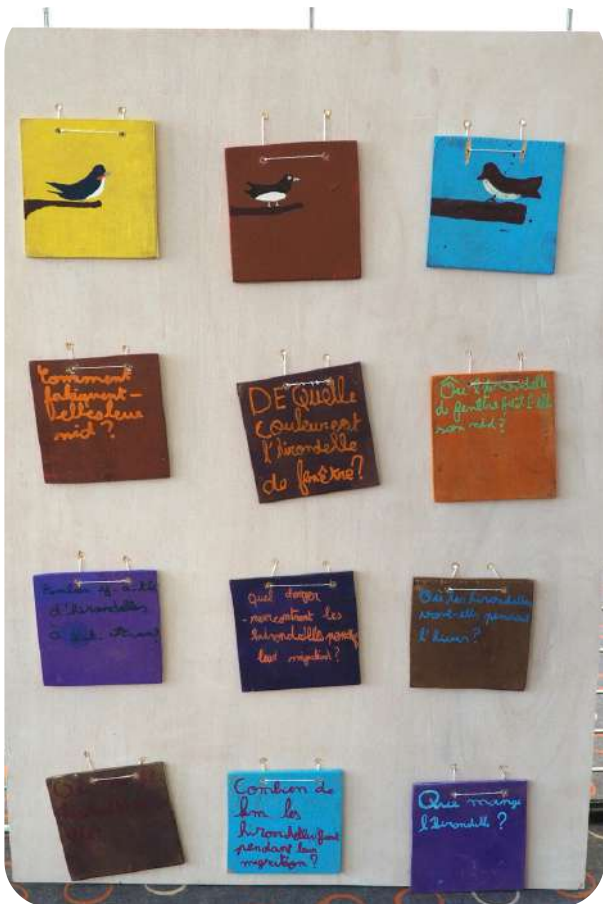 Comment
fabriquent-
elles leur
nid ?
DE Quelle
couleur est
l'hirondelle
de fenêtre ?
Où l'hirondelle
de fenêtre fait-elle
son nid ?
Combien y-a-t-il
d'hirondelles
Quel danger
rencontrent les
hirondelles pendant
leur migration ?
Où les hirondelles
vont-elles pendant
l'hiver ?
Combien de
km les
hirondelles font
pendant leur
migration ?
Que mange
l'hirondelle ?